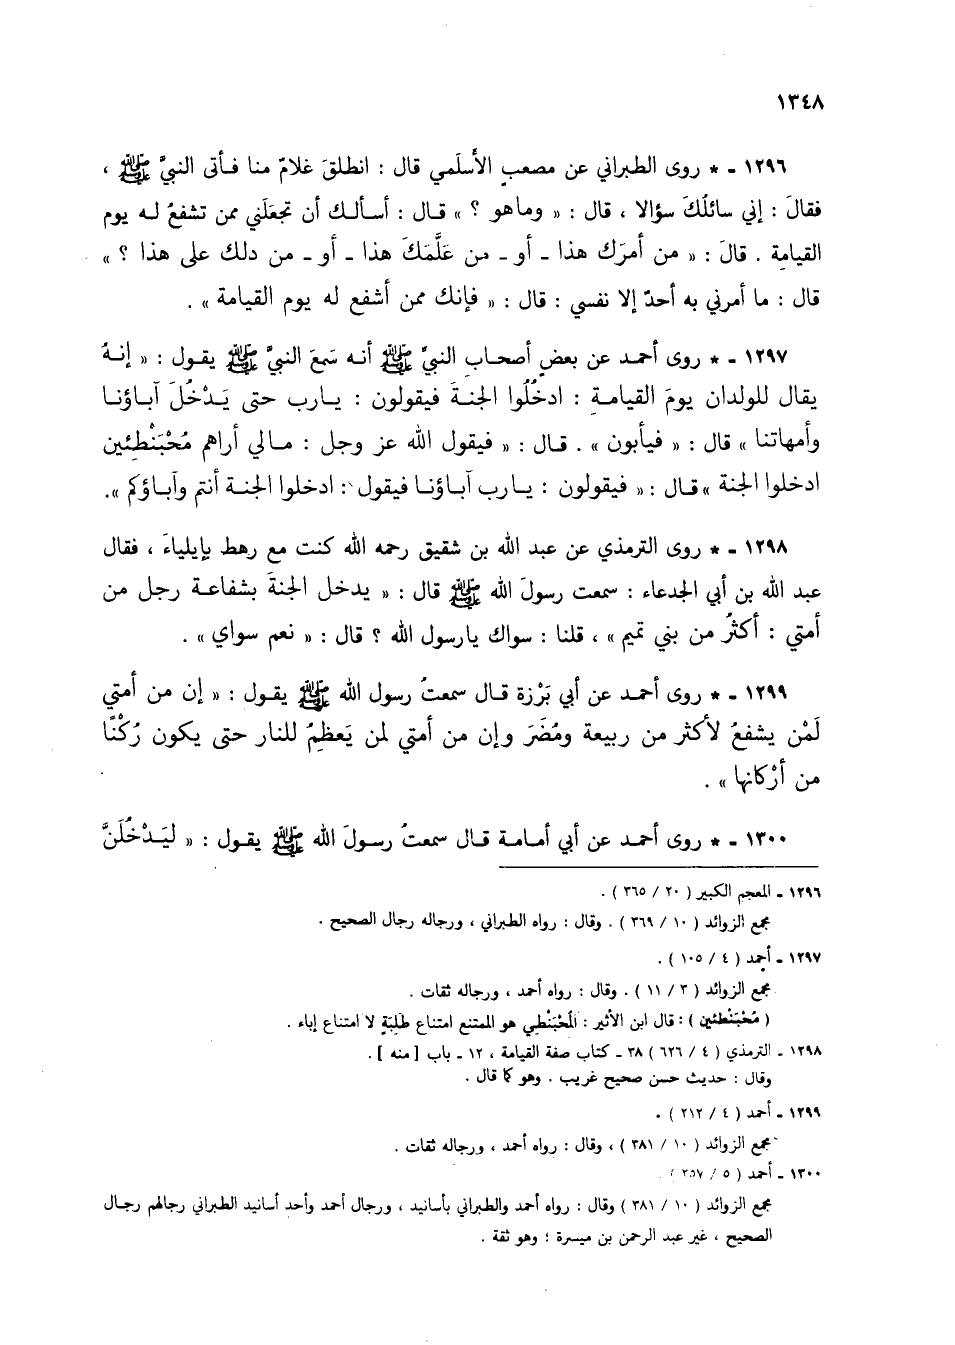 ١٣٤٨
١٢٩٦ ـ * روى الطبراني عن مصعبٍ الأَسلَمي قال : انطلقَ غلامٌ منا فـأتى النبيَّ ﷺ ،
فقالَ : إني سائلُكَ سؤالا ، قال : « وماهو ؟ » قـال : أسألـك أن تجعَلَني ممن تشفعُ لـه يوم
القيامةِ . قالَ : « من أمرَك هذا ـ أو ـ من عَلَّمَكَ هذا ـ أو ـ من دلك على هذا ؟ »
قال : ما أمرني به أحدٌ إلا نفسي : قال : « فإنك ممن أشفع له يوم القيامة » .
١٢٩٧ ـ * روى أحمـد عن بعضِ أصحـابِ النبيِّ ﷺ أنـه سَمِعَ النبيَّ ﷺ يقول : « إنـهُ
يقال للولدان يومَ القيامـةِ : ادخُلُوا الجنـةَ فيقولون : يـارب حتى يَـدْخُلَ آبـاؤنـا
وأمهاتنا » قال : « فيأبون » . قـال : « فيقول الله عز وجل : مـالي أراهم مُحْبَنْطِئين
ادخلوا الجنة » قـال : « فيقولون : يـارب آبـاؤنـا فيقول : ادخلوا الجنـة أنتم وآبـاؤكم ».
١٢٩٨ ـ * روى الترمذي عن عبد الله بن شقيق رحمه الله كنت مع رهط بإيلياءَ ، فقال
عبد الله بن أبي الجدعاء : سمعت رسولَ الله ﷺ قال : « يدخل الجنةَ بشفاعـة رجل من
أمتي : أكثرُ من بني تميم » ، قلنا : سواك يارسول الله ؟ قال : « نعم سواي » .
١٢٩٩ ـ * روى أحمـد عن أبي بَرْزة قـال سمعتُ رسول الله ﷺ يقـول : « إن من أمتي
لَمْن يشفعُ لأكثر من ربيعة ومُضَرَ وإن من أمتي لمن يَعظمُ للنار حتى يكون رُكْنًا
من أرْكانها » .
١٣٠٠ ـ * روى أحمـد عن أبي أمـامـة قـال سمعتُ رسـولَ الله ﷺ يقـول : « ليَـدْخُلَنَّ
١٢٩٦ ـ المعجم الكبير ( ٢٠ / ٣٦٥ ) .
مجمع الزوائد ( ١٠ / ٣٦٩ ) . وقال : رواه الطبراني ، ورجاله رجال الصحيح .
١٢٩٧ ـ أحمد ( ٤ / ١٠٥ ) .
مجمع الزوائد ( ٣ / ١١ ) . وقال : رواه أحمد ، ورجاله ثقات .
( مُحْبَنْطِئين ) : قال ابن الأثير : المُحْبَنْطِي هو الممتنع امتناع طَلِبَةٍ لا امتناع إباء .
١٢٩٨ ـ الترمذي ( ٤ / ٦٢٦ ) ٣٨ ـ كتاب صفة القيامة ، ١٢ ـ باب [ منه ] .
وقال : حديث حسن صحيح غريب . وهو كما قال .
١٢٩٩ ـ أحمد ( ٤ / ٢١٢ ) .
مجمع الزوائد ( ١٠ / ٣٨١ ) ، وقال : رواه أحمد ، ورجاله ثقات .
١٣٠٠ ـ أحمد ( ٥ / ٢٥٧ ) .
مجمع الزوائد ( ١٠ / ٣٨١ ) وقال : رواه أحمد والطبراني بأسانيد ، ورجال أحمد وأحد أسانيد الطبراني رجالهم رجـال
الصحيح ، غير عبد الرحمن بن ميسرة ؛ وهو ثقة .